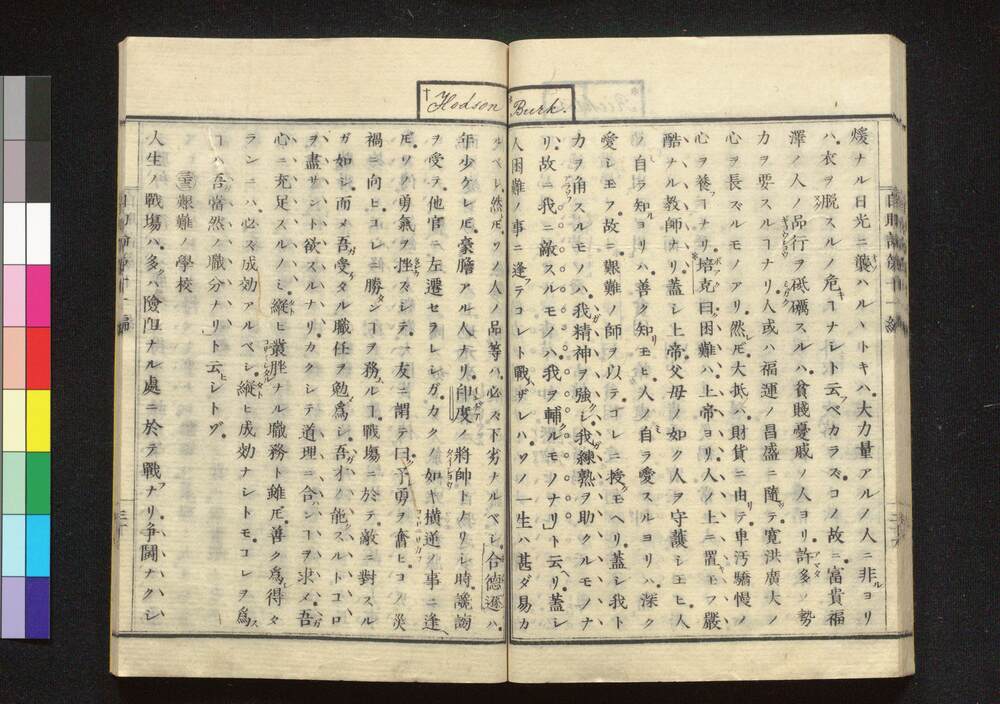 煖ナル日光ニ襲ハルヽトキハ大力量アルノ人ニ非ルヨリ
ハ衣ヲ脱スルノ危キヿナシト云ベカラズコノ故ニ富貴福
澤ノ人ノ品行ヲ砥礪スルハ貧賤憂戚ノ人ヨリ許多ノ勢
力ヲ要スルヿナリ人或ハ福運ノ昌盛ニ隨テ寛洪廣大ノ
心ヲ長ズルモノアリ然レ𪜈大抵ハ財貨ニ由リテ卑汚驕慢ノ
心ヲ養フヿナリ培克曰困難ハ上帝ヨリ人ノ上ニ置キモフ嚴
酷ナル教師ナリ蓋シ上帝父母ノ如ク人ヲ守護シ玉ヒ人
ノ自ラ知ルヨリハ善ク知リ玉ヒ人ノ自ラ愛スルヨリハ深ク
愛シ玉フ故ニ艱難ノ師ヲ以テコレニ授ケ玉ヘリ蓋シ我ト
力ヲ角スルモノハ我精神ヲ強クシ我練熟ヲ助クルモノナ
リ故ニ我ニ敵スルモノハ我ヲ輔クルモノナリト云ヘリ蓋シ
人困難ノ事ニ逢フテコレト戰ハザレハソノ一生ハ甚ダ易カ
Hodson
Burk.
ルベシ然レ𪜈ソノ人ノ品等ハ必ズ下劣ナルベシ合德遜ハ
年少ケレ𪜈豪膽アル人ナリ印度ノ將帥トナリシ時讒謗
ヲ受テ他官ニ左遷セラレシガカクノ如キ橫逆ノ事ニ逢
𪜈ソノ勇氣ヲ挫カズシテ一友ニ謂テ曰予勇ヲ奮ヒコノ災
禍ニ向ヒコレニ勝タンヿヲ務ルヿ戰場ニ於テ敵ニ對スル
ガ如シ而メ吾受タル職任ヲ勉メ為シ吾才ノ能スルトコロ
ヲ盡サント欲スルナリカクシテ道理ニ合ンヿヲ求メ吾
心ニ充足スルノミ縱ヒ煩瑣ナル職務ト雖𪜈善ク為シ得タ
ランニハ必ズ成効アルベシ縱ヒ成効ナシトモコレヲ為ス
ヿハ吾當然ノ職分ナリト云ヒシトゾ
艱難ノ學校
人生ノ戰場ハ多クハ險阻ナル處ニ於テ戰フナリ争鬪ナクシ